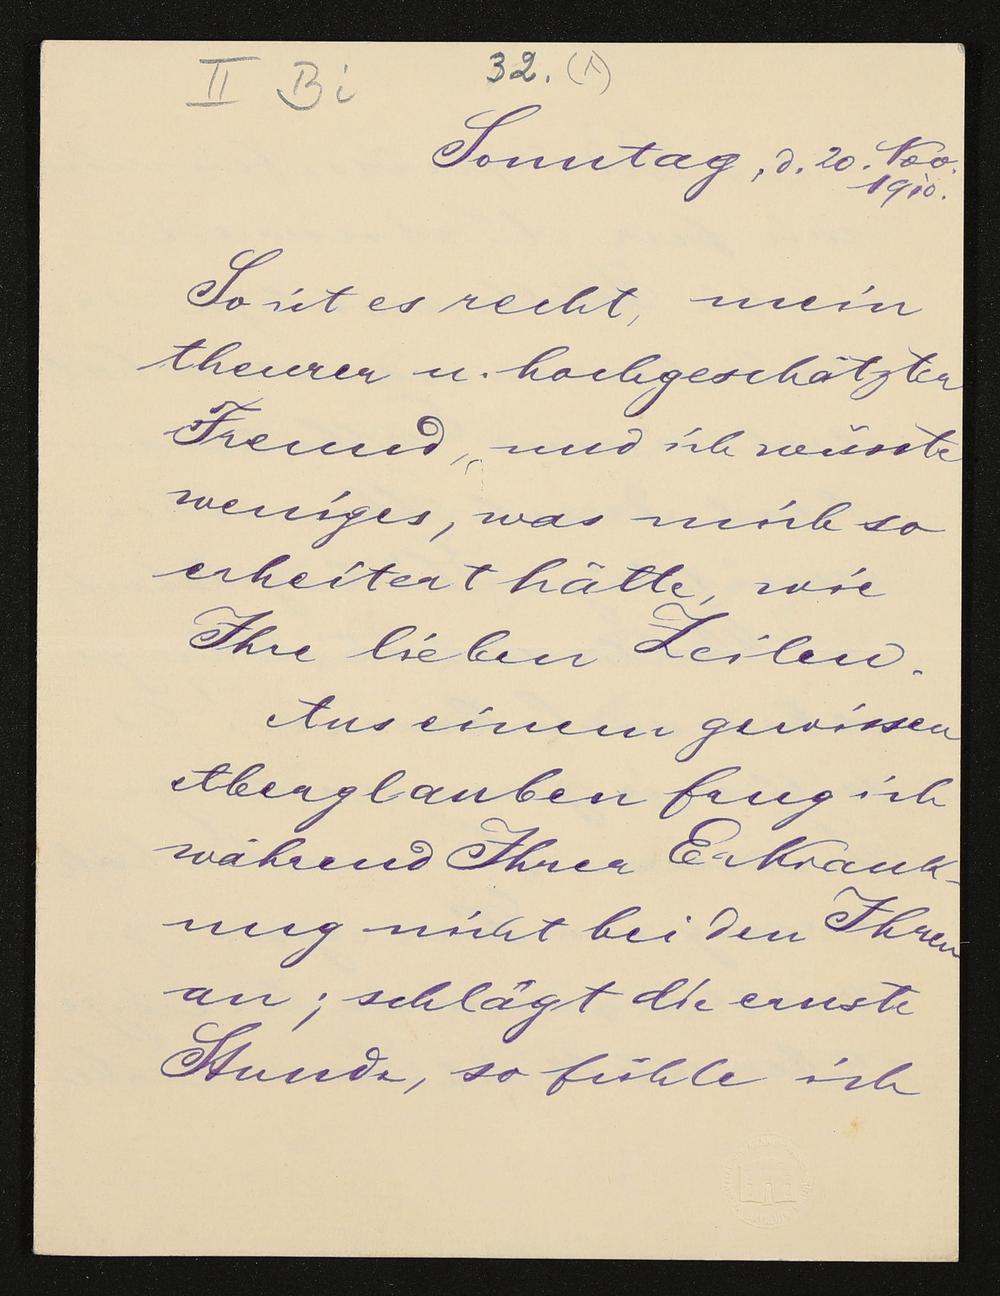 II Bi 32. (1)
Sonntag, d. 20. Nov.
1910.
So ist es recht, mein
theurer u. hochgeschätzter
Freund, und ich wüsste
weniges, was mich so
erheitert hätte, wie
Ihre lieben Zeilen.
Aus einem gewissen
Aberglauben frug ich
während Ihrer Erkrank-
ung nicht bei den Ihren
an; schlägt die ernste
Stunde, so fühle ich